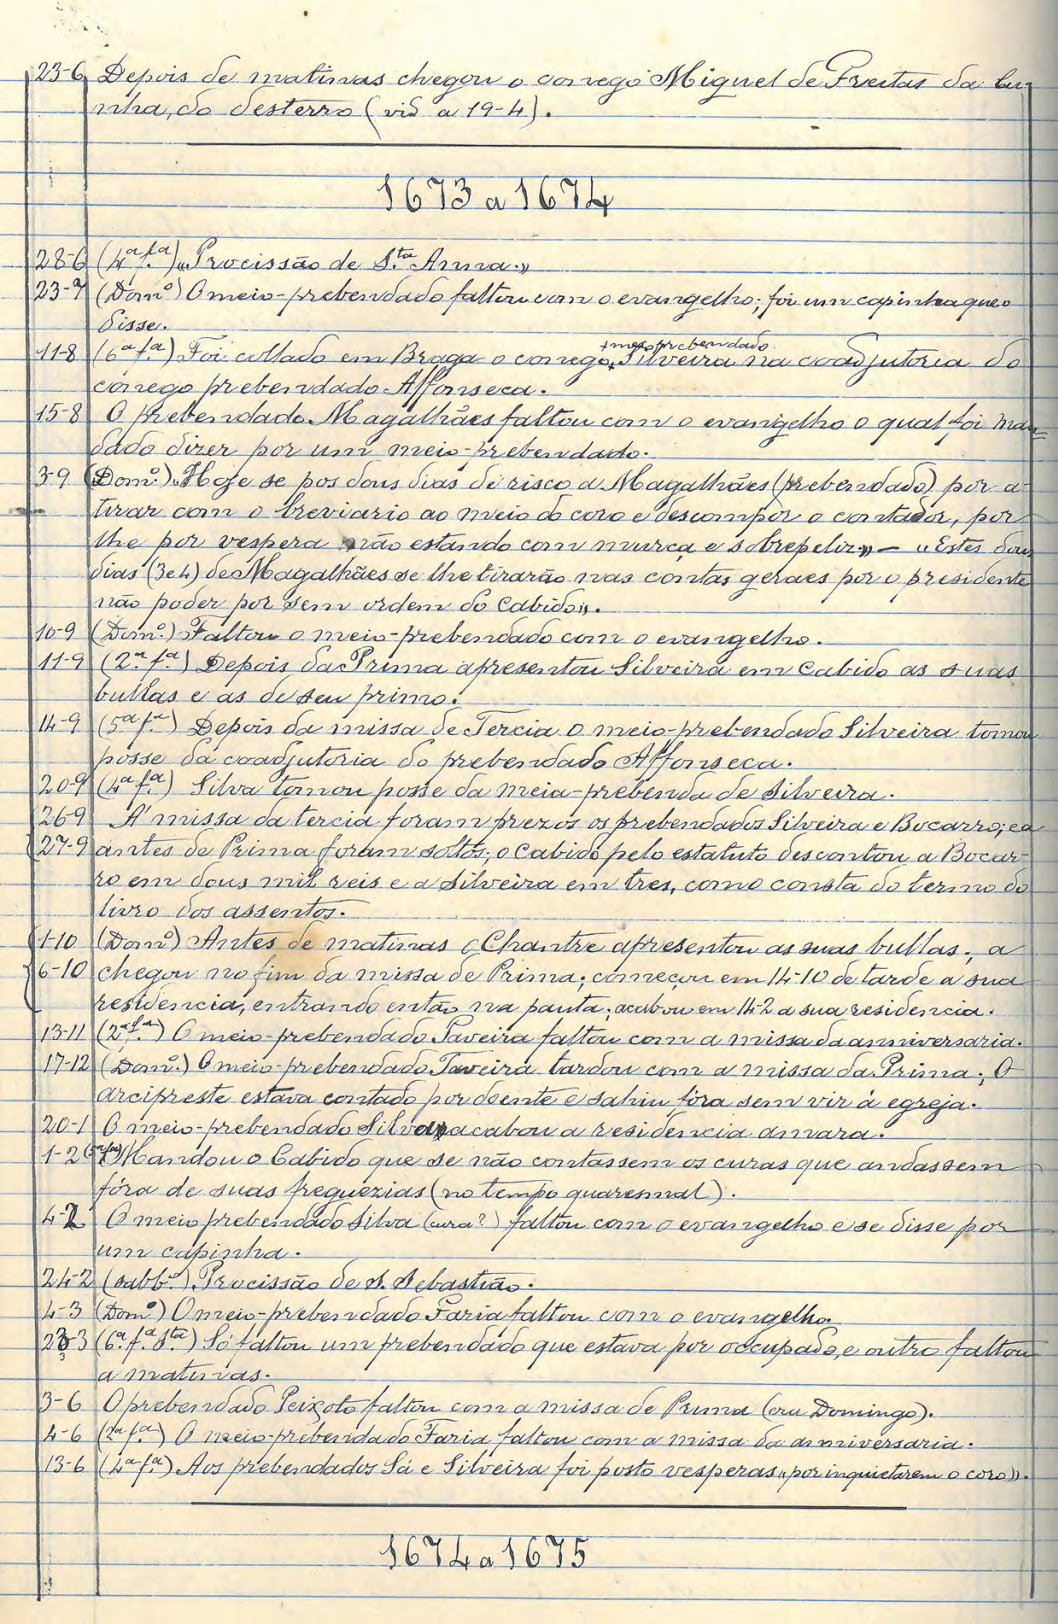 23-6 Depois de matinas chegou o conego Miguel de Freitas da Cu-
nha, do desterro (vid a 19-4).
1673 a 1674
28-6 (4ª fª.) «Procissão de S.ta Anna.»
23-7 (Dom.º) O meio-prebendado faltou com o evangelho; foi um capinha que o
disse.
11-8 (6ª fª.) Foi collado em Braga o conego + meio prebendado Silveira na coadjutoria do
conego prebendado Affonseca.
15-8 O prebendado Magalhães faltou com o evangelho o qual foi man-
dado dizer por um meio-prebendado.
3-9 (Dom.º) «Hoje se pos dous dias de risco a Magalhães (prebendado) por a-
tirar com o breviario ao meio do coro e descompor o contador, por
lhe por vespera não estando com murça e sobrepeliz» — «Estes dous
dias (3 e 4) de Magalhães se lhe tirarão nas contas geraes por o presidente
não poder por sem ordem do Cabido».
10-9 (Dom.º) Faltou o meio-prebendado com o evangelho.
11-9 (2ª fª.) Depois da Prima apresentou Silveira em Cabido as suas
bullas e as de seu primo.
14-9 (5ª fª.) Depois da missa de Tercia o meio-prebendado Silveira tomou
posse da coadjutoria do prebendado Affonseca.
20-9 (4ª fª.) Silva tomou posse da meia-prebenda de Silveira.
26-9 Á missa da tercia foram prezos os prebendados Silveira e Bocarro; e a
27-9 antes de Prima foram soltos; o Cabido pelo estatuto descontou a Bocar-
ro em dous mil reis e a Silveira em tres, como consta do termo do
livro dos assentos.
1-10 (Dom.º) Antes de matinas o Chantre apresentou as suas bullas; a
6-10 chegou no fim da missa de Prima; começou em 14-10 de tarde a sua
residencia, entrando então na pauta; acabou em 14-2 a sua residencia.
13-11 (2ª fª.) O meio-prebendado Taveira faltou com a missa da anniversaria.
17-12 (Dom.º) O meio-prebendado Taveira tardou com a missa da Prima; O
arcipreste estava contado por doente e sahiu fóra sem vir á egreja.
20-1 O meio-prebendado Silva acabou a residencia amara.
1-2 Mandou o Cabido que se não contassem os curas que andassem
fóra de suas freguezias (no tempo quaresmal).
4-2 O meio prebendado Silva (cura?) faltou com o evangelho e se disse por
um capinha.
24-2 (sabb.º) Procissão de S. Sebastião.
4-3 (Dom.º) O meio-prebendado Faria faltou com o evangelho.
23-3 (6ª fª. sta) Só faltou um prebendado que estava por occupado, e outro faltou
a matinas.
3-6 O prebendado Peixoto faltou com a missa de Prima (era Domingo).
4-6 (2ª fª.) O meio-prebendado Faria faltou com a missa da anniversaria.
13-6 (4ª fª.) Aos prebendados Sá e Silveira foi posto vesperas «por inquietarem o coro».
1674 a 1675